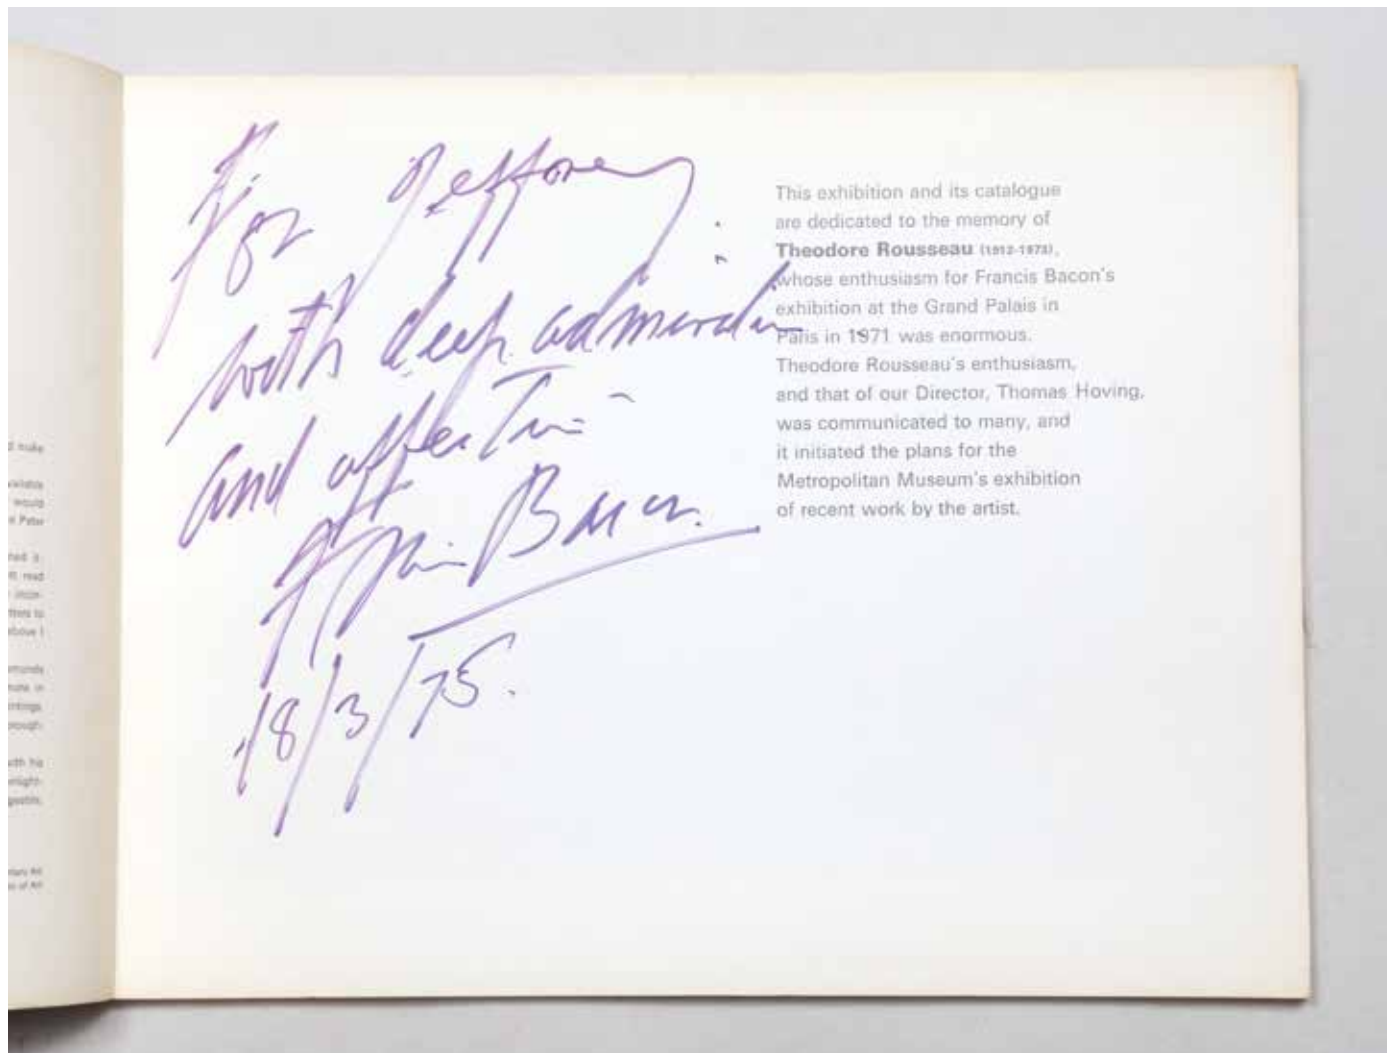 For Jeffrey
with deep admiration
and affection
Francis Bacon.
18/3/75.
This exhibition and its catalogue
are dedicated to the memory of
Theodore Rousseau (1912-1973),
whose enthusiasm for Francis Bacon's
exhibition at the Grand Palais in
Paris in 1971 was enormous.
Theodore Rousseau's enthusiasm,
and that of our Director, Thomas Hoving,
was communicated to many, and
it initiated the plans for the
Metropolitan Museum's exhibition
of recent work by the artist.